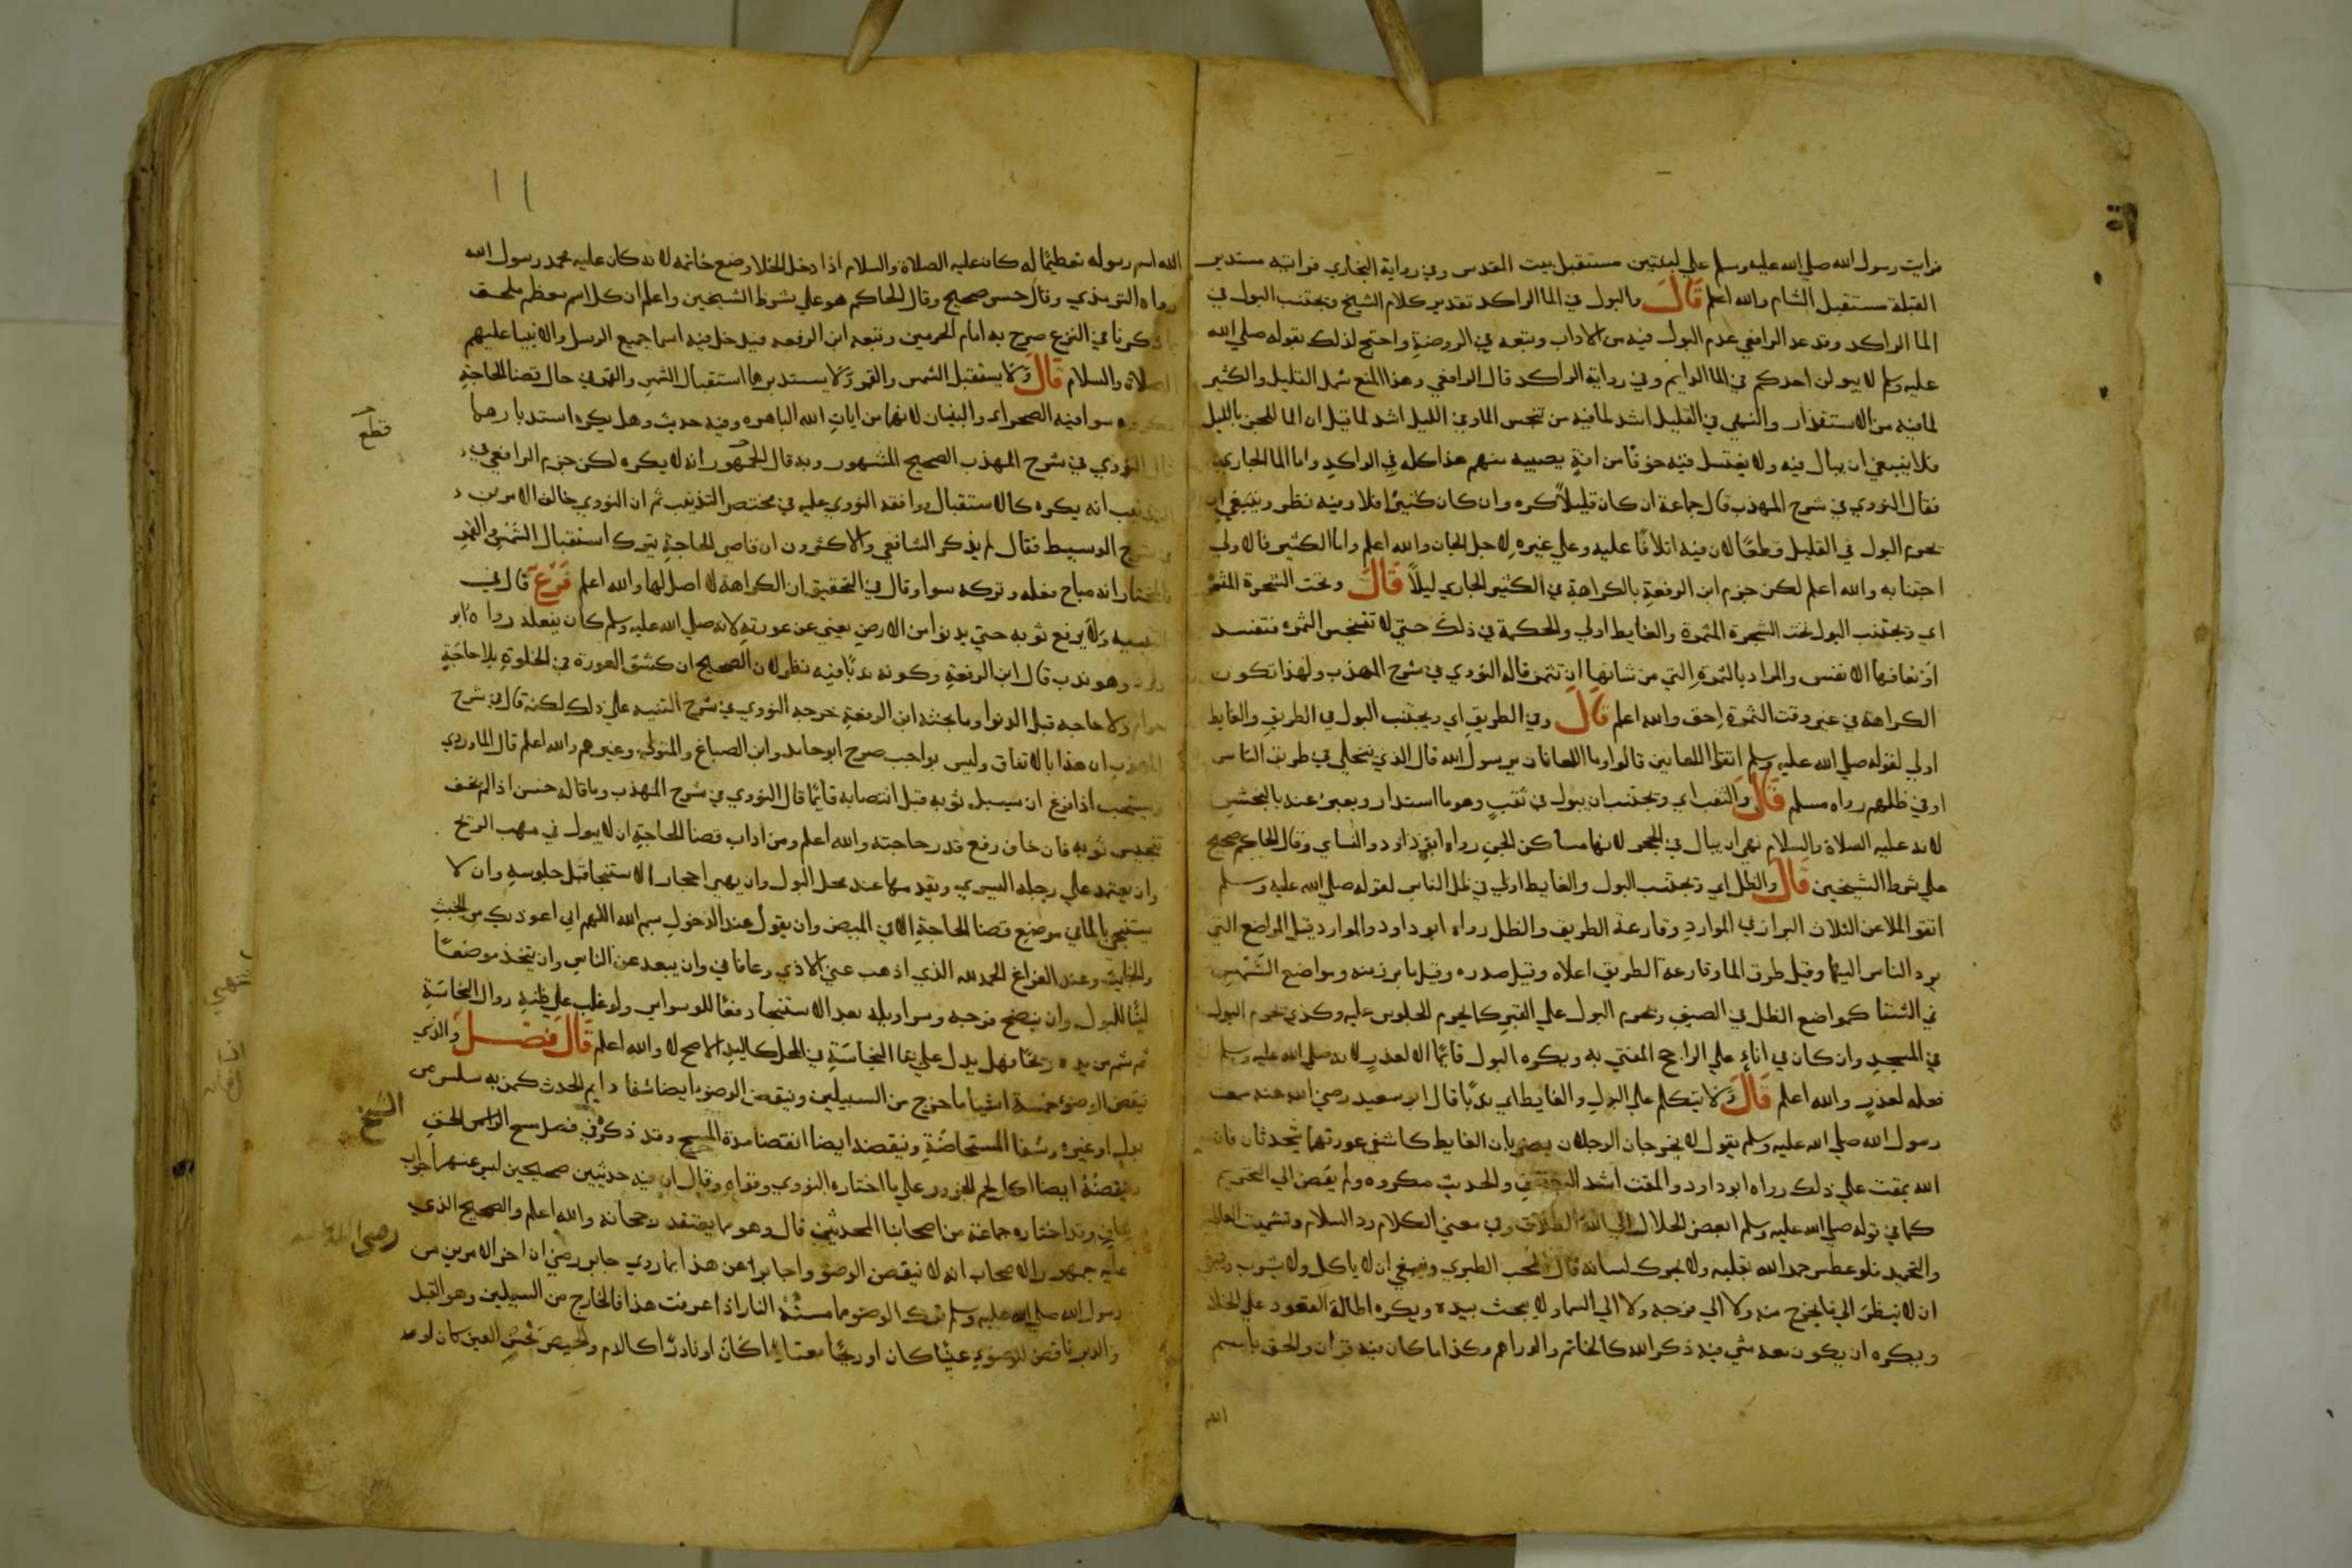 فرايت رسول الله صلي الله عليه وسلم علي لبنتين مستقبل بيت المقدس وفي رواية البخاري فرايته مستدبر
القبلة مستقبل الشام والله اعلم قال والبول في الما الراكد تقدير كلام الشيخ ويجتنب البول في
الما الراكد وقد عد الرافعي عدم البول فيه من الاداب وتبعه في الروضة واحتج لذلك بقوله صلي الله
عليه وسلم لا يبولن احدكم في الما الدايم وفي رواية الراكد قال الرافعي وهذا المنع شمل القليل والكثير
لما فيه من الاستقذار والنهي في القليل اشد لما فيه من تنجس الما وفي الليل اشد لما قيل ان الما للجن بالليل
فلا ينبغي ان يبال فيه ولا يغتسل فيه خوفا من افة يصيبه منهم هذا كله في الراكد واما الما الجاري
فقال النووي في شرح المهذب قال جماعة ان كان قليلا كره وان كان كثيرا فلا وفيه نظر وينبغي ان
يحرم البول في القليل قطعا لان فيه اتلافا عليه وعلي غيره والله اعلم واما الكثير فالاولي
اجتنابه والله اعلم لكن جزم ابن الرفعة بالكراهة في الكثير الجاري ليلا قال وتحت الشجرة المثمرة
اي ويجتنب البول تحت الشجرة المثمرة والغايط اولي والحكمة في ذلك حتي لا تتنجس الثمره فتفسد
او تعافها الانفس والمراد بالثمرة التي من شانها ان تثمر قاله النووي في شرح المهذب ولهذا تكون
الكراهة في غير وقت الثمرة اخف والله اعلم قال وفي الطريق اي ويجتنب البول في الطريق والغايط
اولي لقوله صلي الله عليه وسلم اتقوا اللعانين قالوا وما اللعانان يرسول الله قال الذي يتخلي في طريق الناس
اوفي ظلهم رواه مسلم قال والثقب اي ويجتنب ان يبول في ثقب وهو ما استدار ويعبر عنه بالبخش
لانه عليه السلاة والسلام نهي ان يبال في الجحر لانها مساكن الجن رواه ابو داود والنساي وقال الحاكم صحيح
علي شرط الشيخين قال والظل اي ويجتنب البول والغايط اولي في ظل الناس لقوله صلي الله عليه وسلم
اتقوا الملاعن الثلاث البراز في الموارد وقارعة الطريق والظل رواه ابو داود والموارد قيل المواضع التي
يرد الناس اليها وقيل طرق الما وقارعة الطريق اعلاه وقيل صدره وقيل ما برز منه ومواضع الشمس
في الشتا كمواضع الظل في الصيف ويحرم البول علي القبر كما يحرم الجلوس عليه وكذي يحرم البول
في المسجد وان كان في اناء علي الراجح المفتي به ويكره البول قايما الا لعذر لانه صلي الله عليه وسلم
فعله لعذر والله اعلم قال ولا يتكلم علي البول والغايط اي ندبا قال ابو سعيد رضي الله عنه سمعت
رسول الله صلي الله عليه وسلم يقول لا يخرجان الرجلان يضربان الغايط كاشفي عورتهما يتحدثان فان
الله يمقت علي ذلك رواه ابو داود والمقت اشد البغض والحديث مكروه ولم يفض الي التحريم
كما في قوله صلي الله عليه وسلم ابغض الحلال الي الله الطلاق وفي معني الكلام رد السلام وتشميت العاطس
والتحميد فلو عطس حمد الله بقلبه ولا يحرك لسانه قال المحب الطبري وينبغي ان لا ياكل ولا يشرب
ان لا ينظر الي ما يخرج منه ولا الي فرجه ولا الي السما ولا يعبث بيده ويكره اطالة القعود علي الخلا
ويكره ان يكون معه شي فيه ذكر الله كالخاتم والدراهم وكذا ما كان فيه قران والحق باسم
الله
الله اسم رسوله تعظيما له كان عليه الصلاة والسلام اذا دخل الخلا وضع خاتمه لانه كان عليه محمد رسول الله
رواه الترمذي وقال حسن صحيح وقال الحاكم هو علي شرط الشيخين واعلم ان كل اسم معظم ملحق
بما ذكرنا في النزع صرح به امام الحرمين وتبعه ابن الرفعه فيدخل فيه اسما جميع الرسل والانبيا عليهم
الصلاة والسلام قال ولا يستقبل الشمس والقمر ولا يستدبرهما استقبال الشمس والقمر في حال قضا الحاجة
مكروه سوا فيه الصحراء والبنيان لانهما من ايات الله الباهره وفيه حديث وهل يكره استدبارهما
قال النووي في شرح المهذب الصحيح المشهور وبه قال الجمهور انه لا يكره لكن جزم الرافعي في
التذنيب انه يكره كالاستقبال ووافقه النووي عليه في مختصر التذنيب ثم ان النووي خالف الامرين
في شرح الوسيط فقال لم يذكر الشافعي والاكثرون ان قاضي الحاجة يترك استقبال الشمس والقمر
فالمختار انه مباح فعله وتركه سوا وقال في التحقيق ان الكراهة لا اصل لها والله اعلم فرع قال في
التنبيه ولا يرفع ثوبه حتي يدنوا من الارض يعني عن عورته لانه صلي الله عليه وسلم كان يفعله رواه ابو
داود وهو ندب قال ابن الرفعة وكونه ندبا فيه نظر لان الصحيح ان كشف العورة في الخلوة بلا حاجة
حرام ولا حاجه قبل الدنو وما بحثه ابن الرفعة خرجه النووي في شرح التنبيه علي ذلك لكنه قال في شرح
المهذب ان هذا بالاتفاق وليس بواجب صرح ابو حامد وابن الصباغ والمتولي وغيرهم والله اعلم قال الماوردي
ويستحب اذا فرغ ان يسبل ثوبه قبل انتصابه قايما قال النووي في شرح المهذب وما قاله حسن اذا لم يخف
تنجيس ثوبه فان خاف رفع قدر حاجته والله اعلم ومن اداب قضا الحاجة ان لا يبول في مهب الريح
وان يعتمد علي رجله اليسري ويقدمها عند محل البول وان يهيي احجار الاستنجا قبل جلوسه وان لا
يستنجي بالما في موضع قضا الحاجة الا في المبيض وان يقول عند الدخول بسم الله اللهم اني اعوذ بك من الخبث
والخبايث وعند الفراغ الحمد لله الذي اذهب عني الاذي وعافاني وان يبعد عن الناس وان يتخذ موضعا
لينا للبول وان ينضح فرجه وسراويله بعد الاستنجا دفعا للوسواس ولو غلب علي ظنه زوال النجاسة
ثم شم من يده ريحا فهل يدل علي بقا النجاسة في المحل كاليد الاصح لا والله اعلم قال فصل والذي
ينقض الوضوء خمسة اشيا ما خرج من السبيلين وينقض الوضوء ايضا شفا دايم الحدث كمن به سلس من
بول او غيره وشفا المستحاضة وينقضه ايضا انقضا مدة المسح وقد ذكره في فصل مسح الخف
وينقضه ايضا اكل لحم الجزور علي ما اختاره النووي وقواه وقال ان فيه حديثين صحيحين ليس عنهما جواب
شاف وقد اختاره جماعة من اصحابنا المحدثين قال وهو مما يعتقد رجحانه والله اعلم والصحيح الذي
عليه جمهور الاصحاب انه لا ينقض الوضو واجابوا عن هذا بما روي جابر رضي ان اخر الامرين من
رسول الله صلي الله عليه وسلم ترك الوضو مما مسته النار اذا عرفت هذا فالخارج من السبيلين وهو القبل
والدبر ناقض للوضوء عينا كان او ريحا معتادا كان او نادرا كالدم والحصي نجس العين كان او
قطع
الشيخ
رضي الله عنه